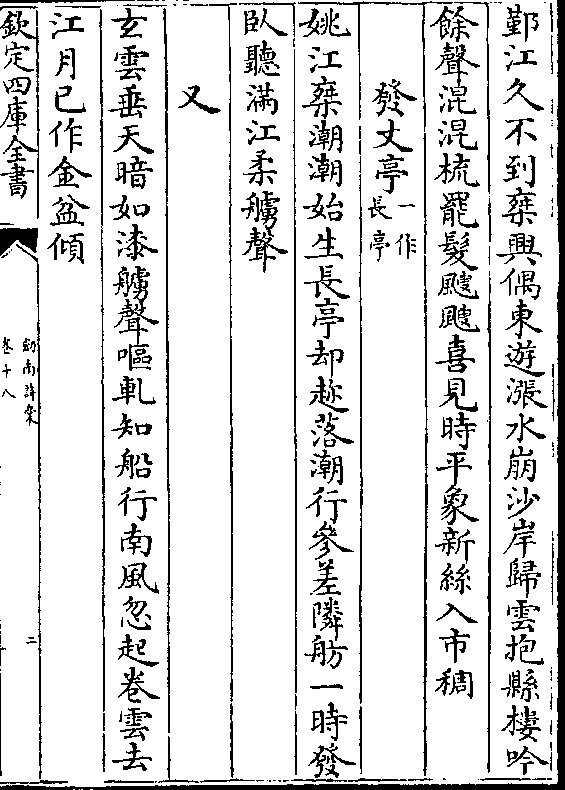 鄞江久不到乗興偶東遊漲水崩沙岸歸雲抱縣樓吟
餘聲混混梳罷髮颼颼喜見時平象新絲入市稠
發丈亭一作長亭
姚江乗潮潮始生長亭却趂落潮行參差隣舫一時發
臥聽滿江柔艣聲
又
玄雲垂天暗如漆艣聲嘔軋知船行南風忽起卷雲去
江月已作金盆傾
欽定四庫全書
劒南詩槀
卷十八
二